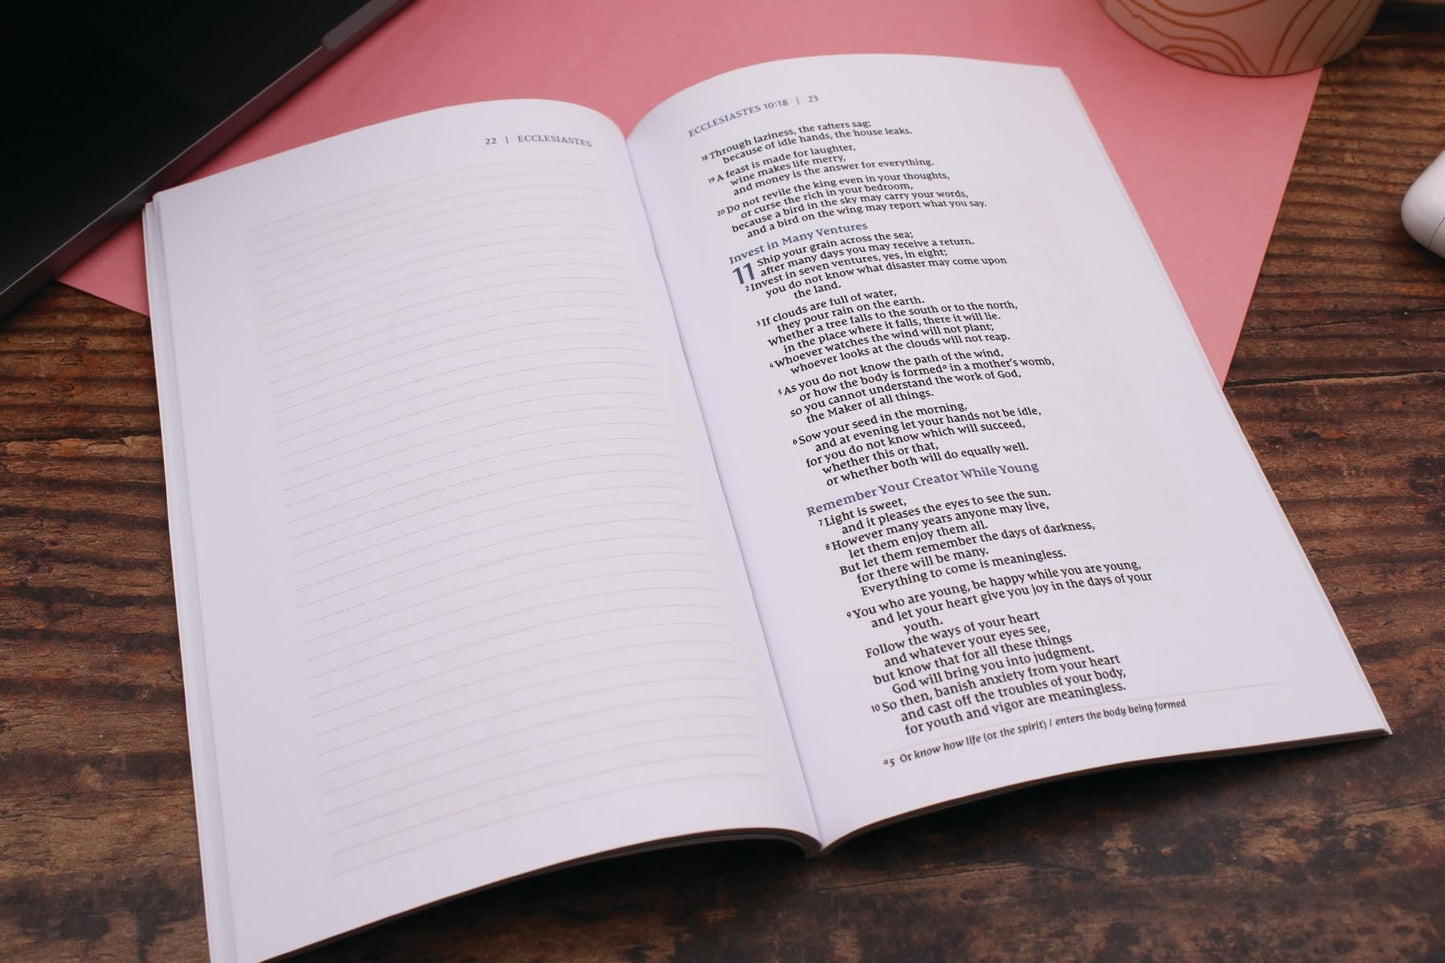 22 | ECCLESIASTES
ECCLESIASTES 10:18 | 23
18 Through laziness, the rafters sag;
because of idle hands, the house leaks.
19 A feast is made for laughter,
wine makes life merry,
and money is the answer for everything.
20 Do not revile the king even in your thoughts,
or curse the rich in your bedroom,
because a bird in the sky may carry your words,
and a bird on the wing may report what you say.
Invest in Many Ventures
11 Ship your grain across the sea;
after many days you may receive a return.
2 Invest in seven ventures, yes, in eight;
you do not know what disaster may come upon
the land.
3 If clouds are full of water,
they pour rain on the earth.
Whether a tree falls to the south or to the north,
in the place where it falls, there it will lie.
4 Whoever watches the wind will not plant;
whoever looks at the clouds will not reap.
5 As you do not know the path of the wind,
or how the body is formed a in a mother's womb,
so you cannot understand the work of God,
the Maker of all things.
6 Sow your seed in the morning,
and at evening let your hands not be idle,
for you do not know which will succeed,
whether this or that,
or whether both will do equally well.
Remember Your Creator While Young
7 Light is sweet,
and it pleases the eyes to see the sun.
8 However many years anyone may live,
let them enjoy them all.
But let them remember the days of darkness,
for there will be many.
Everything to come is meaningless.
9 You who are young, be happy while you are young,
and let your heart give you joy in the days of your
youth.
Follow the ways of your heart
and whatever your eyes see,
but know that for all these things
God will bring you into judgment.
10 So then, banish anxiety from your heart
and cast off the troubles of your body,
for youth and vigor are meaningless.
a 5 Or know how life (or the spirit) / enters the body being formed